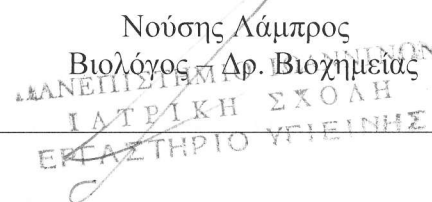 Νούσης Λάμπρος
Βιολόγος – Δρ. Βιοχημείας
ΠΑΝΕΠΙΣΤΗΜΙΟ ΙΩΑΝΝΙΝΩΝ
ΙΑΤΡΙΚΗ ΣΧΟΛΗ
ΕΡΓΑΣΤΗΡΙΟ ΥΓΙΕΙΝΗΣ